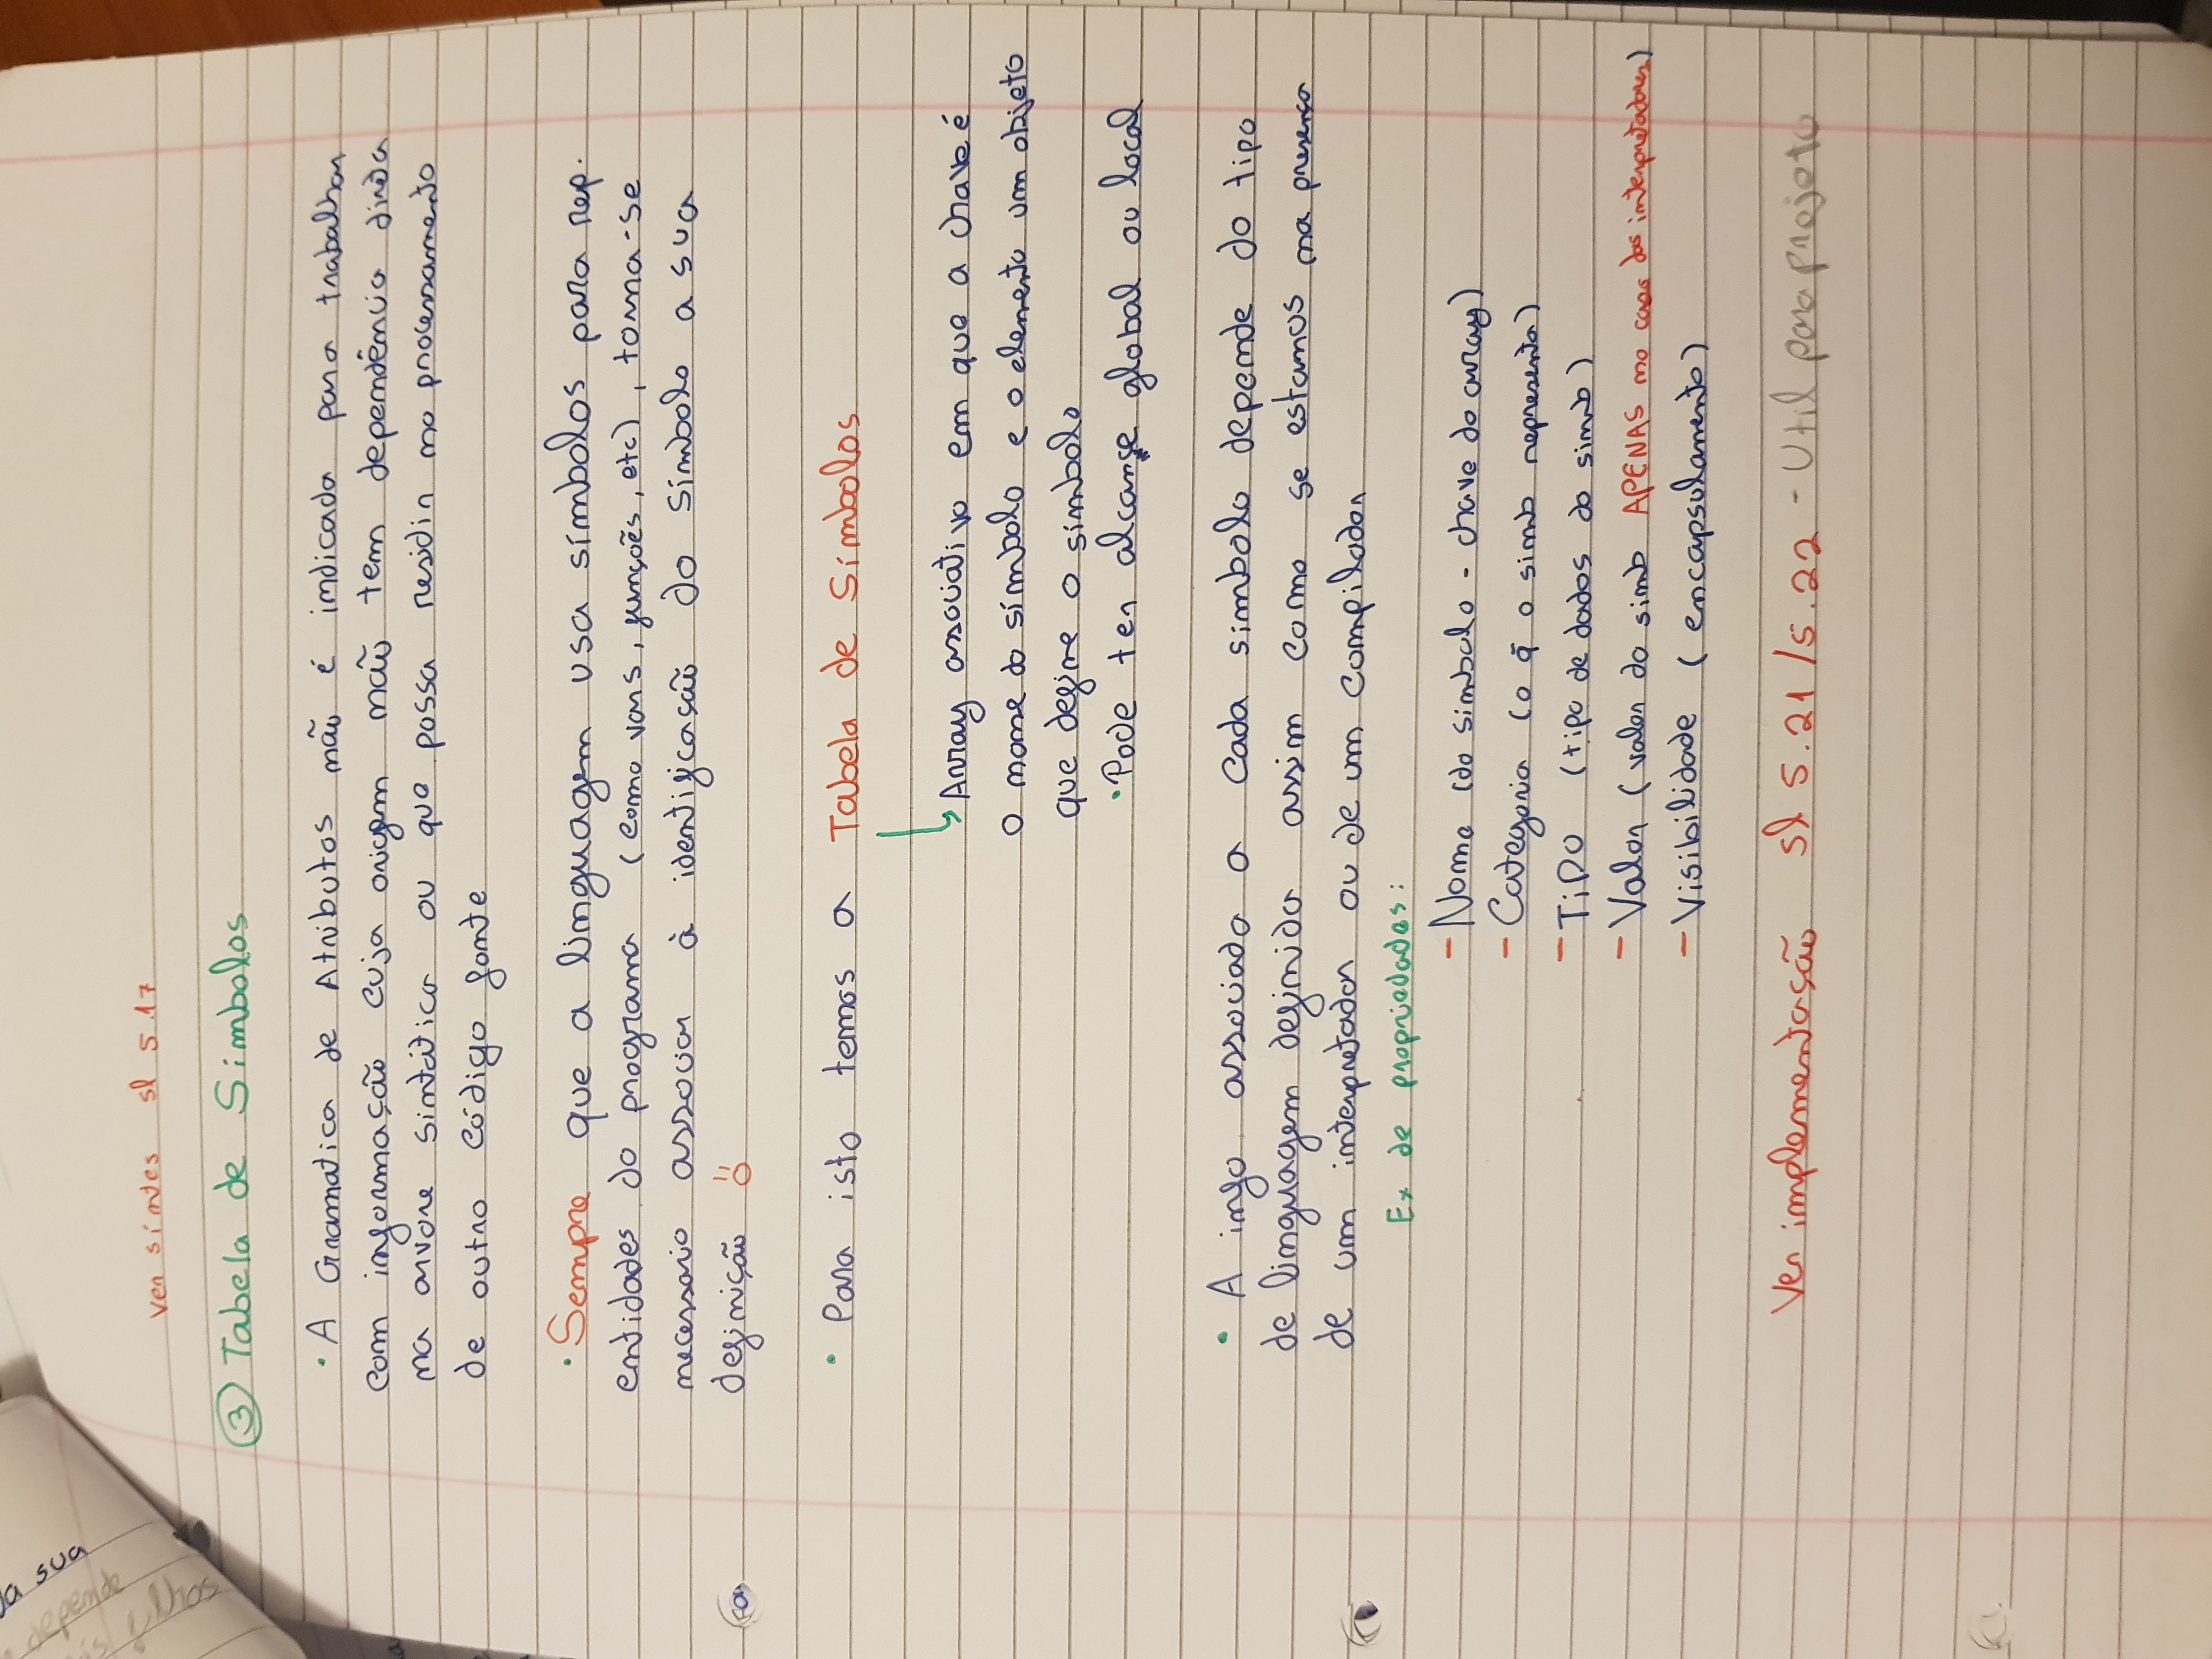 da sua
depende
filhos
Ver síntes sl 5.17
③ Tabela de Simbolos
· A Gramatica de Atributos não é indicada para trabalhar
com informação cuja origem não tem dependência direta
na arvore sintática ou que possa residir no processamento
de outro código fonte
· Sempre que a linguagem usa símbolos para rep.
entidades do programa (como vars, funções, etc), torna-se
necessario associar à identificação do Símbolo a sua
definição
· Para isto temos a Tabela de Símbolos
↳ Array associativo em que a chave é
o nome do símbolo e o elemento um objeto
que define o simbolo
· Pode ter alcançe global ou local
· A info associada a cada simbolo depende do tipo
de linguagem definida assim como se estamos na presença
de um interpretador ou de um compilador
Ex de propriedades:
- Nome (do simbolo - chave do array)
- Categoria (o q̃ o simb representa)
- Tipo (tipo de dados do simb)
- Valor (valor do simb APENAS no caso dos interpretadores)
- Visibilidade (encapsulamento)
Ver implementação sl 5.21 / 5.22 - Util para projeto